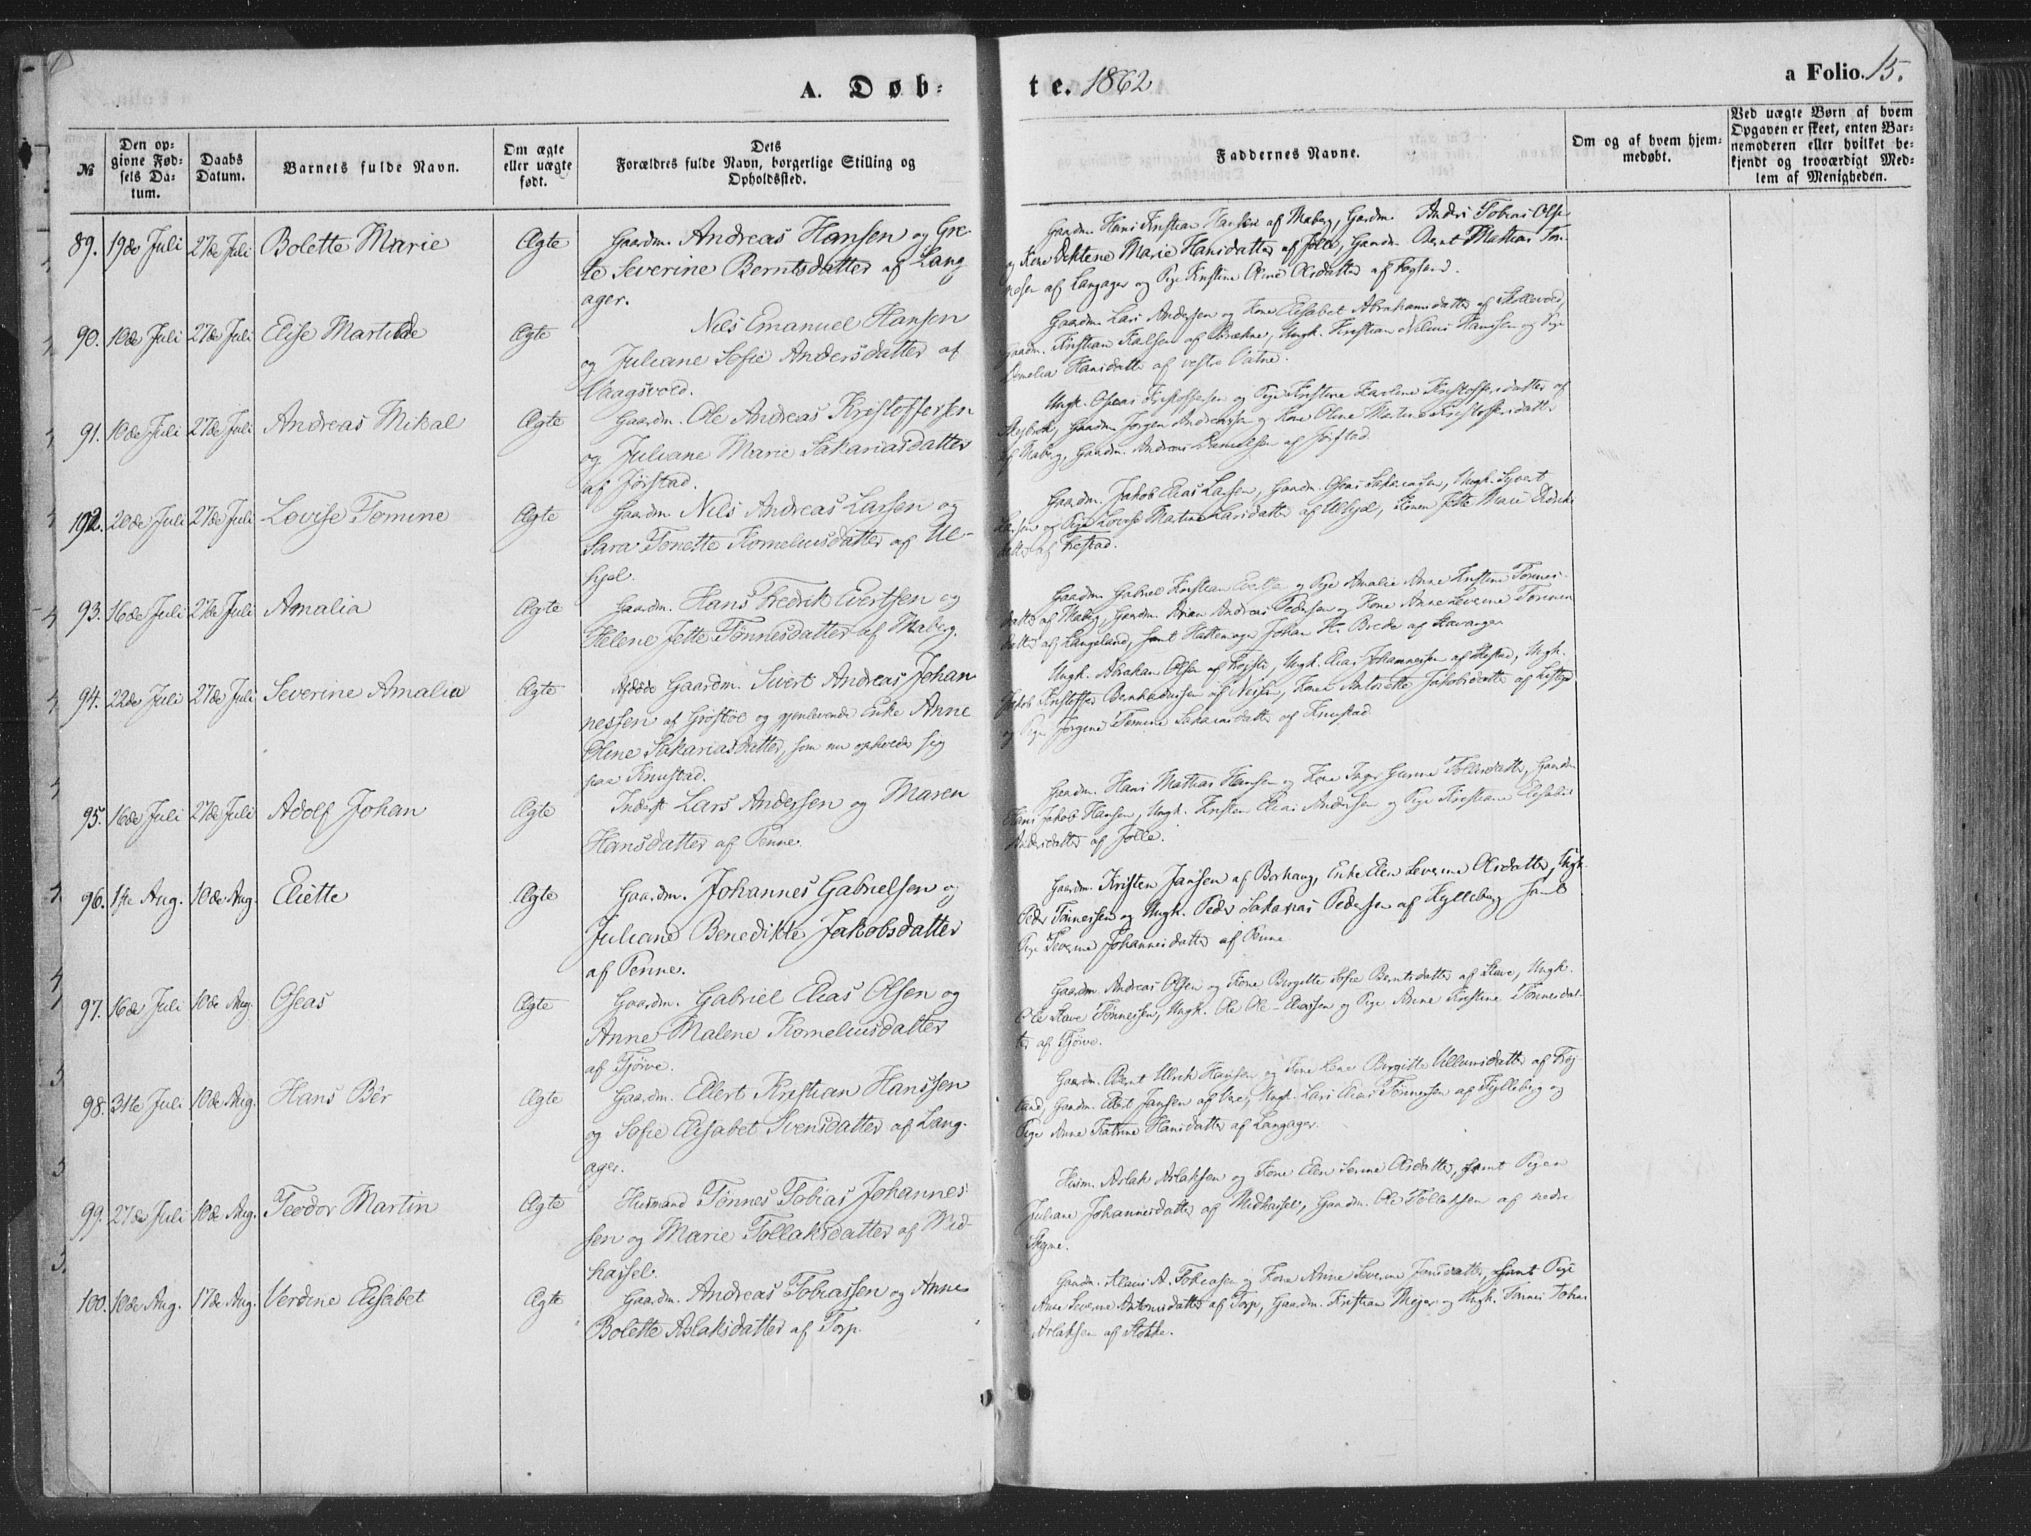 A. Døb-
te. 1862
a Folio. 15.
№
Den op-
givne Fød-
sels Da-
tum.
Daabs
Datum.
Barnets fulde Navn.
Om ægte
eller uægte
født.
Dets
Forældres fulde Navn, borgerlige Stilling og
Opholdssted.
Faddernes Navne.
Om og af hvem hjem-
medøbt.
Ved uægte Børn af hvem
Opgaven er skeet, enten Bar-
nemoderen eller hvilket be-
kjendt og troværdigt Med-
lem af Menigheden.
89. 19de Juli 27de Juli Bolette Marie Ægte Gaardm. Andreas Hansen og Gre-
te Severine Berntsdatter af Lang
ager.
Gaardm. Hans Kristian Hansen af Maberg, Gardm. Anders Tobias Olse
og Kone Marie Hansdatter af Jølle, Gaardm. Bernt Mathias Ton-
nesen af Langager og Pige Kristine Olsdatter af
90. 10de Juli 27de Juli Elise Martilde Ægte Nils Emanuel Hansen
og Juliane Sofie Andersdatter af
Vaagsvold.
Gaardm. Lars Andersen og Kone Elisabet Abrahamsdatter af Skollevold,
Gaardm. Kristian Karlsen af Brækne, Ungk. Kristian Nilaus Hansen og Pige
Hansdatter af vestre Vatne.
91. 10de Juli 27de Juli Andreas Mikal Ægte Gaardm. Ole Andreas Kristoffersen
og Juliane Marie Sakariasdatter
af Jørstad.
Ungk. Oseas Kristoffersen og Pige Kristine Karlene Kristoffersdatter af
Gaardm. Jørgen Andreassen og Kone Oline Martine Kristoffersdatter
af Maberg, Gaardm. Andreas Danielsen af Jørstad.
192. 20de Juli 27de Juli Lovise Tomine Ægte Gaardm Nils Andreas Larsen og
Sara Tonette Korneliusdatter af Ul-
hjel.
Gaardm. Jakob Elias Larsen, Gaardm. Oseas Sakariasen, Ungk. Syvert
Larsen og Pige Lovise Martine Larsdatter af Ulhjel, Konen Jette Marie
datter af
93. 16de Juli 27de Juli Amalia Ægte Gaardm. Hans Fredrik Evertsen og
Helene Jette Tønnesdatter af Maberg.
Gaardm. Gabriel Kristian og Pige Amalie Anne Kristine Tønnes-
datter af Maberg, Gaardm. Andreas Pedersen og Kone Anne Severine Tønnes
datter af Langeland, samt Hattemager Johan H. Brede af Stavanger
94. 22de Juli 27de Juli Severine Amalia Ægte Afdøde Gaardm. Sivert Andreas Johan
nessen af Grostøl og gjenlevende Enke Anne
Oline Sakariasdatter, som nu opholder sig
paa Knustad.
Ungk. Abraham Olsen af Ungk. Elias Johannessen af Ungk.
Jakob Kristoffer Bernhardussen af Kone Antonette Jakobsdatter af
og Pige Jørgine Tomine Sakariasdatter af Knustad.
95. 16de Juli 27de Juli Adolf Johan Ægte Inderst Lars Andersen og Maren
Hansdatter af Penne.
Gaardm. Hans Mathias Hansen og Kone Inger Gurine Tollisdatter, Gaardm
Hans Jakob Hansen, Ungk. Kristen Elias Andersen og Pige Kristiane Elisabet
Andersdatter af Jølle.
96. 1ste Aug. 10de Aug. Eliette Ægte Gaardm. Johannes Gabrielsen og
Juliane Benedikte Jakobsdatter
af Penne.
Gaardm. Kristen Jansen af Borhaug, Enke Elen Severine Olsdatter, Ungk.
Peder Tønnessen og Ungk. Peder Sakarias Pedersen af Kjylleberg samt
Pige Severine Johannesdatter af Penne.
97. 16de Juli 10de Aug. Oseas Ægte Gaardm. Gabriel Elias Olsen og
Anne Malene Korneliusdatter
af Tjørve.
Gaardm. Andreas Olsen og Kone Birgitte Sofie Berntsdatter af Stave, Ungk.
Ole Stave Tønnessen, Ungk. Ole Ole-Eliassen og Pige Anne Kristine Tønnesdat-
ter af Tjørve.
98. 31te Juli 10de Aug. Hans Bêr Ægte Gaardm. Elert Kristian Hanssen
og Sofie Elisabet Svensdatter af Lang-
ager.
Gaardm. Bernt Ulrik Hansen og Kone Lene Birgitte Villumsdatter af
land, Gaardm. Elert Jansen af Ore, Ungk. Lars Elias Tønnessen af Kjylleberg og
Pige Anne Katrine Hansdatter af Langager.
99. 27de Juli 10de Aug. Teodor Martin Ægte Husmand Tønnes Tobias Johannes-
sen og Marie Tollaksdatter af Mid-
hassel.
Husm. Aslak Aslaksen og Kone Elen Serine Olsdatter, samt Pigen
Juliane Johannesdatter af Midhassel, Gaardm. Ole Tollaksen af nedre
100. 10de Aug. 17de Aug. Verdine Elisabet Ægte Gaardm. Andreas Tobiassen og Anne
Bolette Aslaksdatter af Torp.
Gaardm. Alaus A. Tobiasen og Kone Anne Severine Jansdatter, samt Pige
Ane Severine Antonsdatter af Torp, Gaardm. Kristian Mejer og Ungk. Tønnes Tobias
Aslaksen af Stokke.